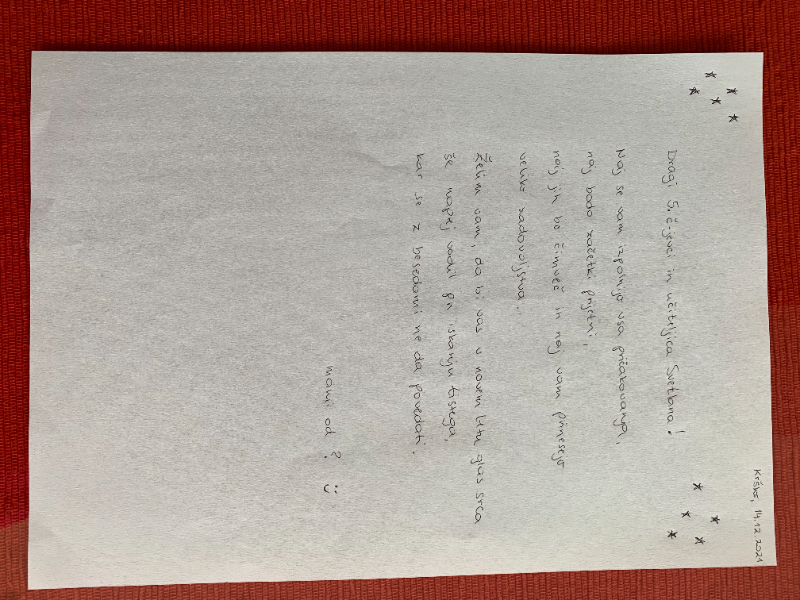 Krško, 14.12.2021
Dragi 5.č-jevci in učiteljica Svetlana!
Naj se vam izpolnijo vsa pričakovanja,
naj bodo začetki prijetni,
naj jih bo čimveč in naj vam prinesejo
veliko zadovoljstva.
Želim vam, da bi vas v novem letu glas srca
še naprej vodil pri iskanju tistega,
kar se z besedami ne da povedati.
mami od ? ü